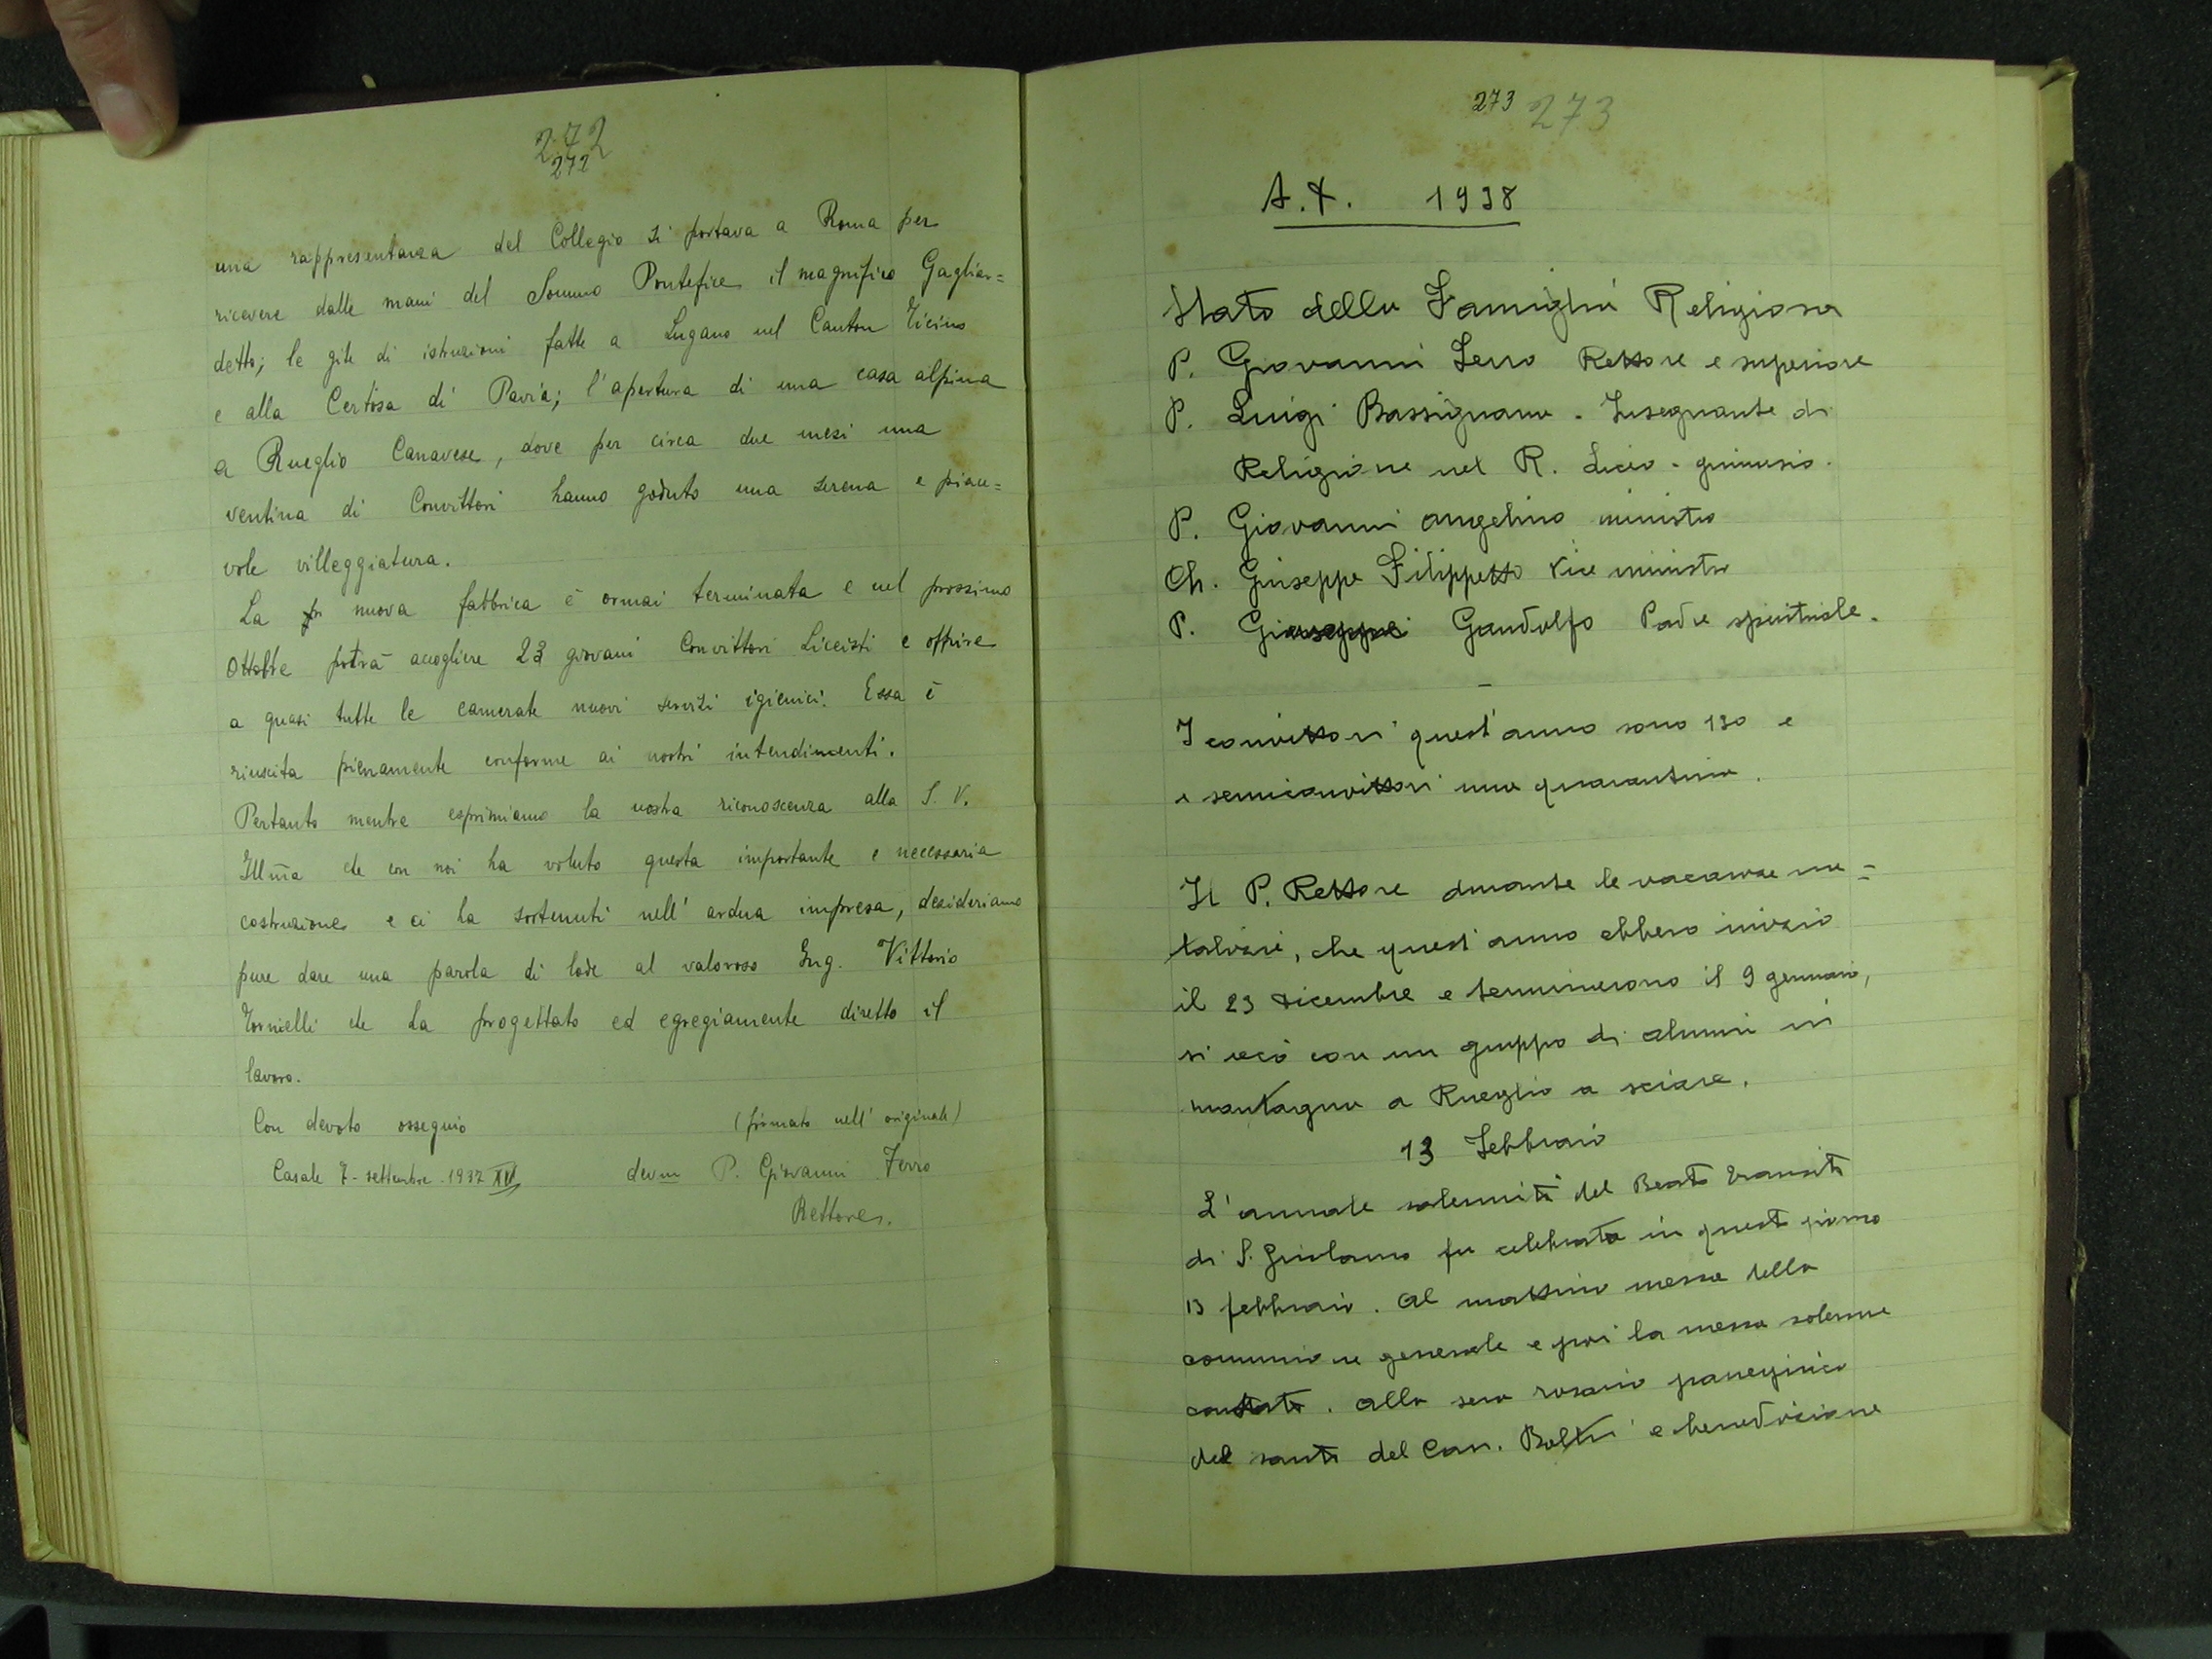 272
272
una rappresentanza del Collegio si portava a Roma per
ricevere dalle mani del Sommo Pontefice il magnifico Gagliar=
detto; le gite di istruzioni fatte a Lugano nel Canton Ticino
e alla Certosa di Pavia; l'apertura di una casa alpina
a Rueglio Canavese, dove per circa due mesi una
ventina di Convittori hanno goduto una serena e piace=
vole villeggiatura.
La nuova fabbrica è ormai terminata e nel prossimo
Ottobre potrà accogliere 23 giovani Convittori Liceisti e offrire
a quasi tutte le camerate nuovi servizi igienici. Essa è
riuscita pienamente conforme ai nostri intendimenti.
Pertanto mentre esprimiamo la nostra riconoscenza alla S. V.
Illma che con noi ha voluto questa importante e necessaria
costruzione e ci ha sostenuti nell'ardua impresa, desideriamo
pure dare una parola di lode al valoroso Ing. Vittorio
Tornielli che ha progettato ed egregiamente diretto il
lavoro.
Con devoto ossequio (firmato nell'originale)
Casale 7 - settembre - 1937 XV dev.m P. Giovanni Ferro
Rettore.
273 273
A.X. 1938
Stato della Famiglia Religiosa
P. Giovanni Ferro Rettore e superiore
P. Luigi Bassignana - Insegnante di
Religione nel R. Liceo - ginnasio.
P. Giovanni Angelino ministro
Ch. Giuseppe Filippetto Vice ministro
P. Giuseppe Gandolfo Padre spirituale.
I convittori quest'anno sono 130 e
i semiconvittori una quarantina.
Il P. Rettore durante le vacanze na=
talizie, che quest'anno ebbero inizio
il 23 dicembre e terminarono il 9 gennaio,
si recò con un gruppo di alunni in
montagna a Rueglio a sciare.
13 Febbraio
L'annuale solennità del Beato Transito
di S. Girolamo fu celebrata in questo giorno
13 febbraio. Al mattino messa della
comunione generale e poi la messa solenne
cantata. Alla sera rosario panegirico
del santo del Can. Boltri e benedizione